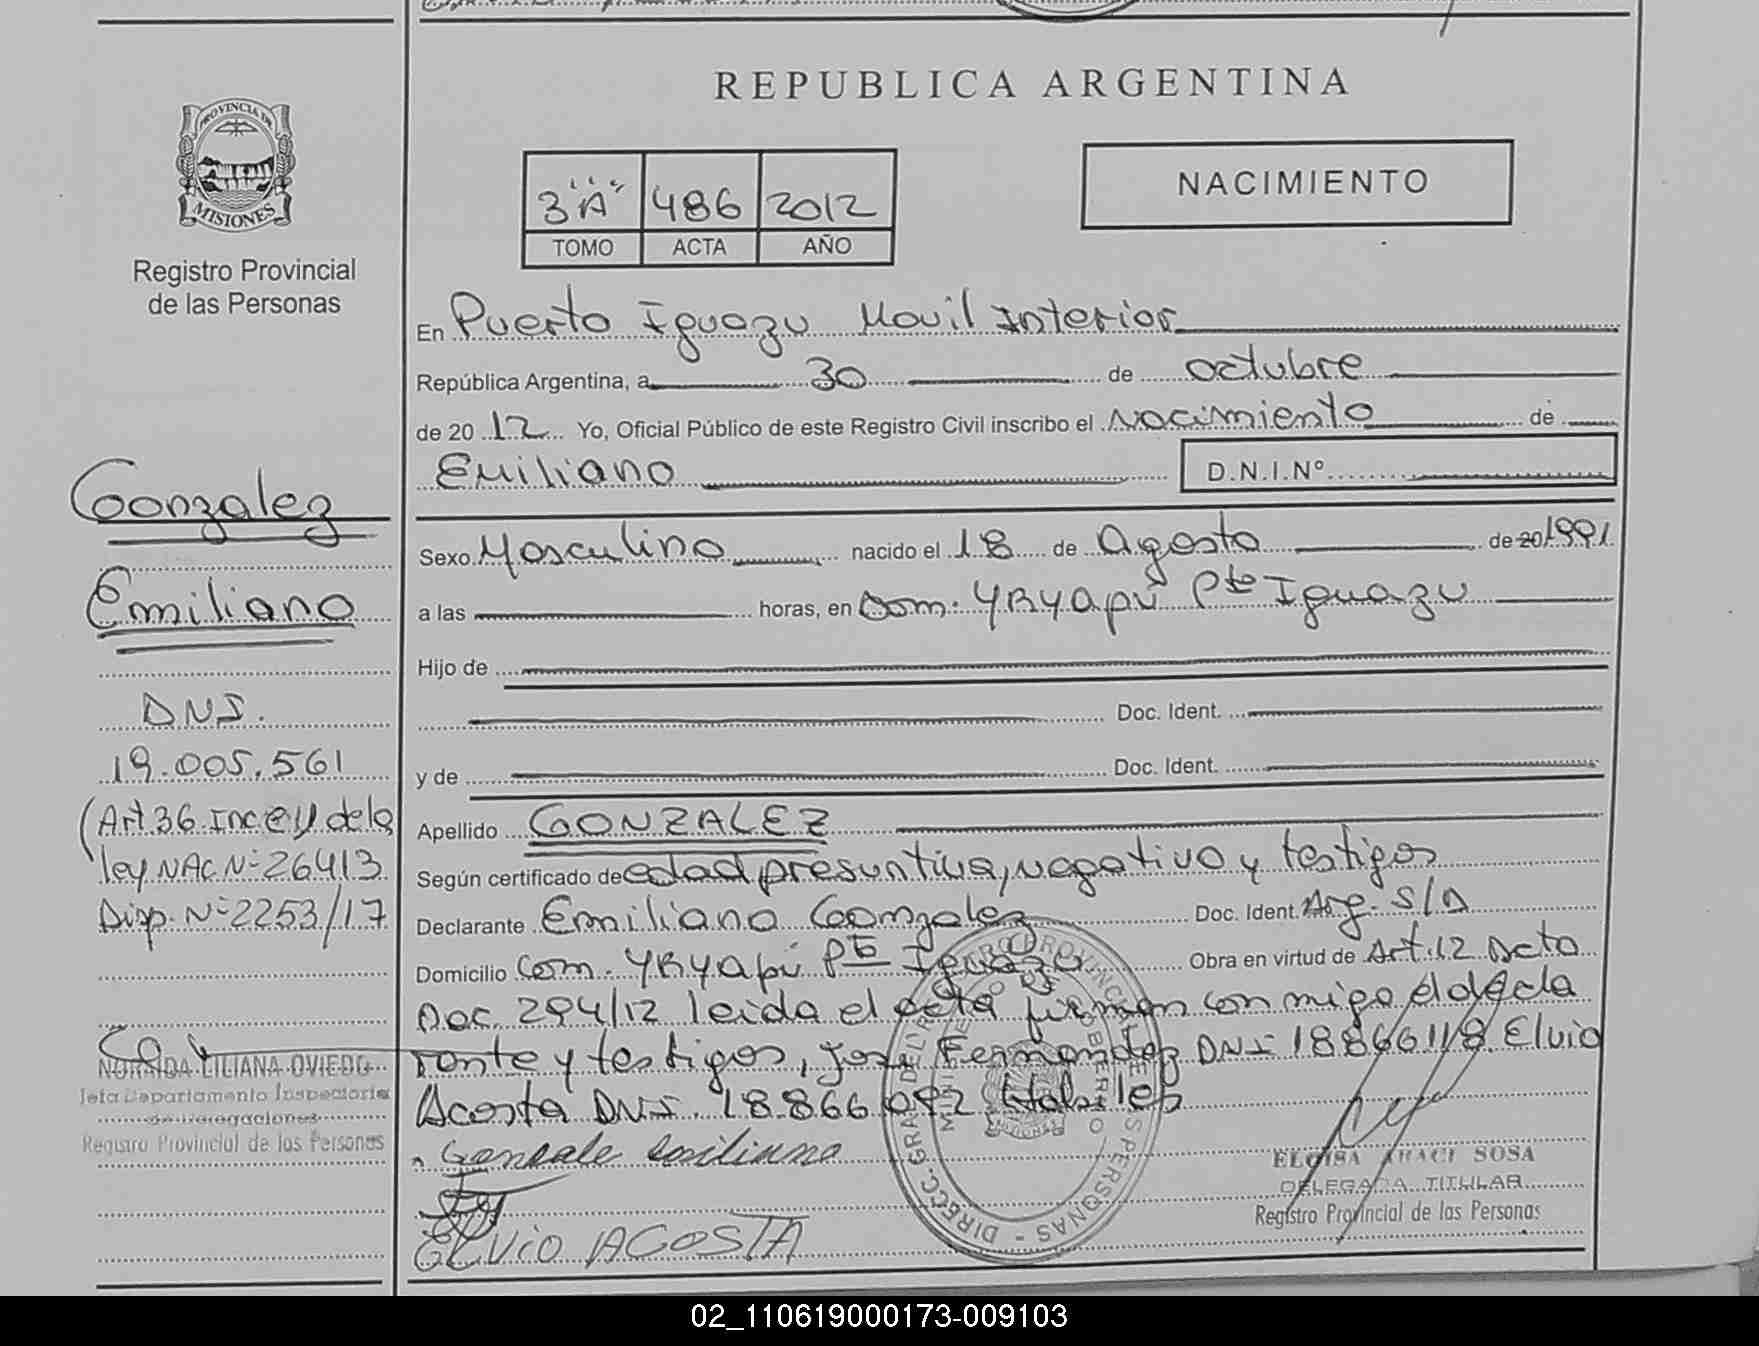 REPUBLICA ARGENTINA
PROVINCIA DE
MISIONES
Registro Provincial
de las Personas
3 "A" 486 2012
TOMO ACTA AÑO
NACIMIENTO
En Puerto Iguazu Movil Interior
República Argentina, a 30 de octubre
de 2012 Yo, Oficial Público de este Registro Civil inscribo el Nacimiento de
Emiliano D.N.I.Nº
Sexo Masculino nacido el 18 de Agosto de 20 1991
a las horas, en Com. YRYapú Pto Iguazu
Hijo de
Doc. Ident.
y de Doc. Ident.
Apellido GONZALEZ
Según certificado de edad presuntiva, negativo y testigos
Declarante Emiliano Gonzalez Doc. Ident. Arg. S/D
Domicilio Com. YRYapú Pto Iguazu Obra en virtud de Art. 12 Dcto
Doc. 294/12 leida el acta firman con migo el decla
rante y testigos, Jose Fernandez DNI 18866118 Elvio
Acosta DNI. 18.866.092 Habiles
Gonzale Emiliano
ELVIO ACOSTA
ELOISA ARACI SOSA
DELEGADA TITULAR
Registro Provincial de las Personas
Gonzalez
Emiliano
DNI.
19.005.561
(Art 36 Inc e) de la
ley NAC Nº 26413
Disp. Nº 2253/17
NORMA LILIANA OVIEDO
Jefa Departamento Inspectoria
de Delegaciones
Registro Provincial de las Personas
02_110619000173-009103